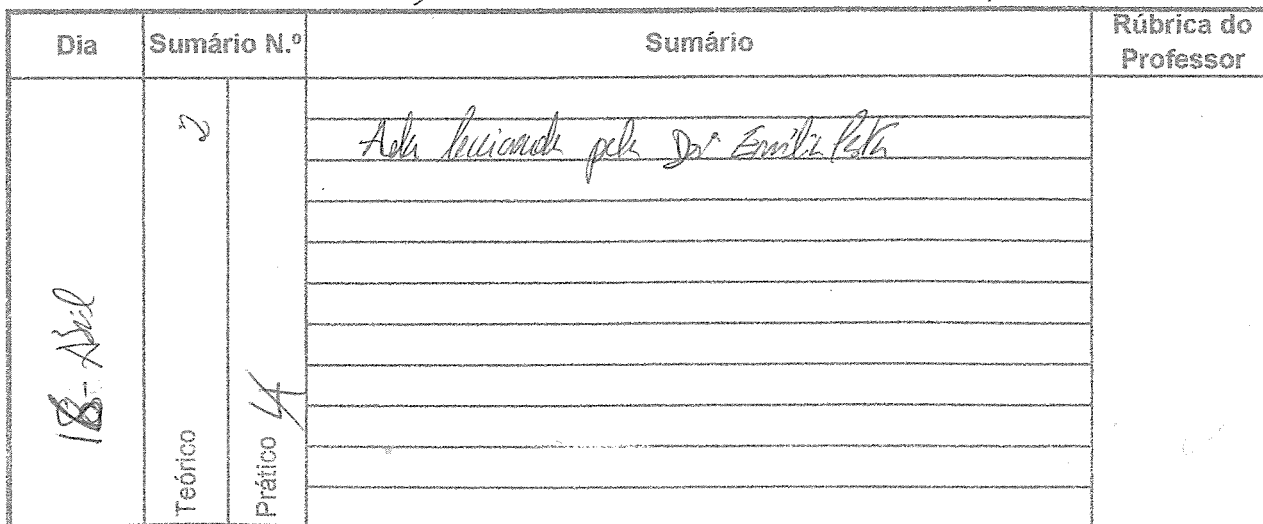 Dia Sumário N.º Sumário Rúbrica do Professor
18 - Abril
Teórico 2
Prático 4
Aula leccionada pela Drª Emília